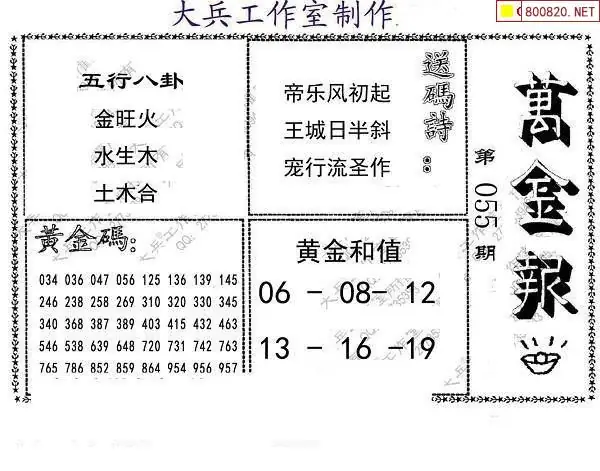 大兵工作室制作
800820.NET
萬金報
第055期
五行八卦
金旺火
水生木
土木合
送碼詩：
帝乐风初起
王城日半斜
宠行流圣作
黄金碼：
034 036 047 056 125 136 139 145
246 238 258 269 310 320 330 345
340 368 387 389 403 415 432 463
546 538 639 648 720 731 742 763
765 786 852 859 864 954 956 957
黄金和值
06 - 08- 12
13 - 16 -19